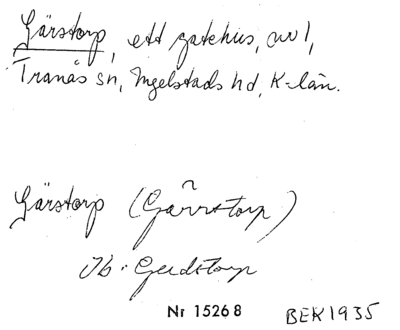 Gärstorp, ett gatehus, nr 1,
Tranås sn, Ingelstads hd, K-län.
Gärstorp (Gärrstorp)
Jb: Gerdstorp
Nr 15268 BEK 1935